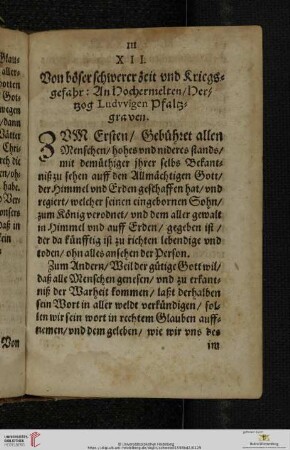 III
XII.
Von böser schwerer zeit vnd Kriegs-
gefahr: An Hochermelten/Her-
tzog Ludvvigen Pfaltz-
graven.
ZVM Ersten/ Gebühret allen
Menschen/ hohes vnd nideres stands/
mit demüthiger jhrer selbs Bekant-
niß zu sehen auff den Allmächtigen Gott/
der Himmel vnd Erden geschaffen hat/ vnd
regiert/ welcher seinen eingebornen Sohn/
zum König verodnet/ vnd dem aller gewalt
in Himmel vnd auff Erden/ gegeben ist/
der da künfftig ist zu richten lebendige vnd
todten/ ohn alles ansehen der Person.
Zum Andern/ Weil der gütige Gott wil/
daß alle Menschen genesen/ vnd zu erkant-
niß der Warheit kommen/ laßt derhalben
sein Wort in aller welt verkündigen/ sol-
len wir sein wort in rechtem Glauben auff-
nemen/ vnd dem geleben/ wie wir vns des
im
Von